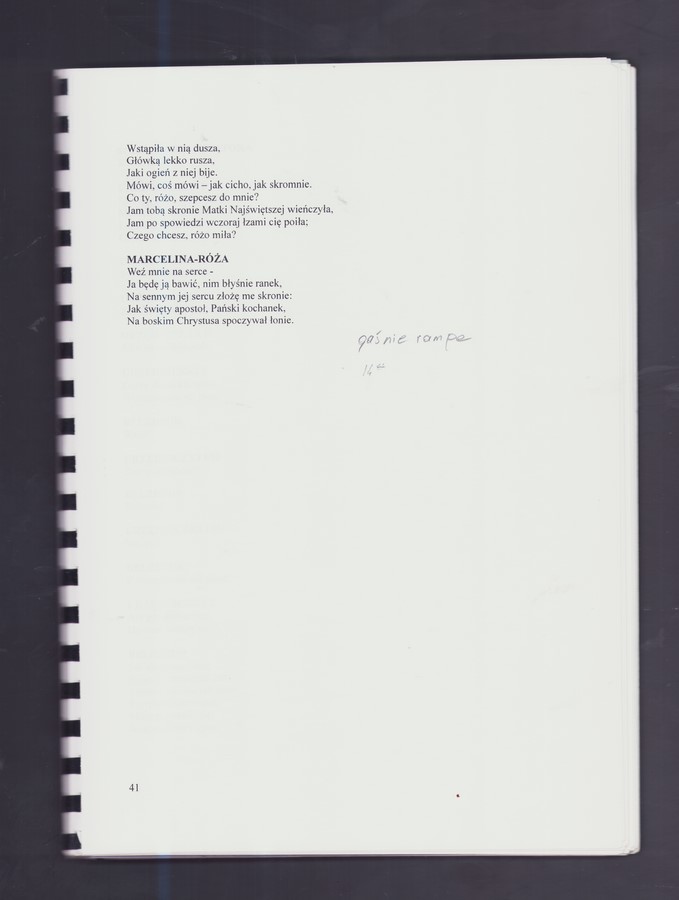 Wstąpiła w nią dusza,
Główką lekko rusza,
Jaki ogień z niej bije.
Mówi, coś mówi – jak cicho, jak skromnie.
Co ty, różo, szepcesz do mnie?
Jam tobą skronie Matki Najświętszej wieńczyła,
Jam po spowiedzi wczoraj łzami cię poiła;
Czego chcesz, różo miła?
MARCELINA-RÓŻA
Weź mnie na serce -
Ja będę ją bawić, nim błyśnie ranek,
Na sennym jej sercu złożę me skronie:
Jak święty apostoł, Pański kochanek,
Na boskim Chrystusa spoczywał łonie.
gaśnie rampa
41